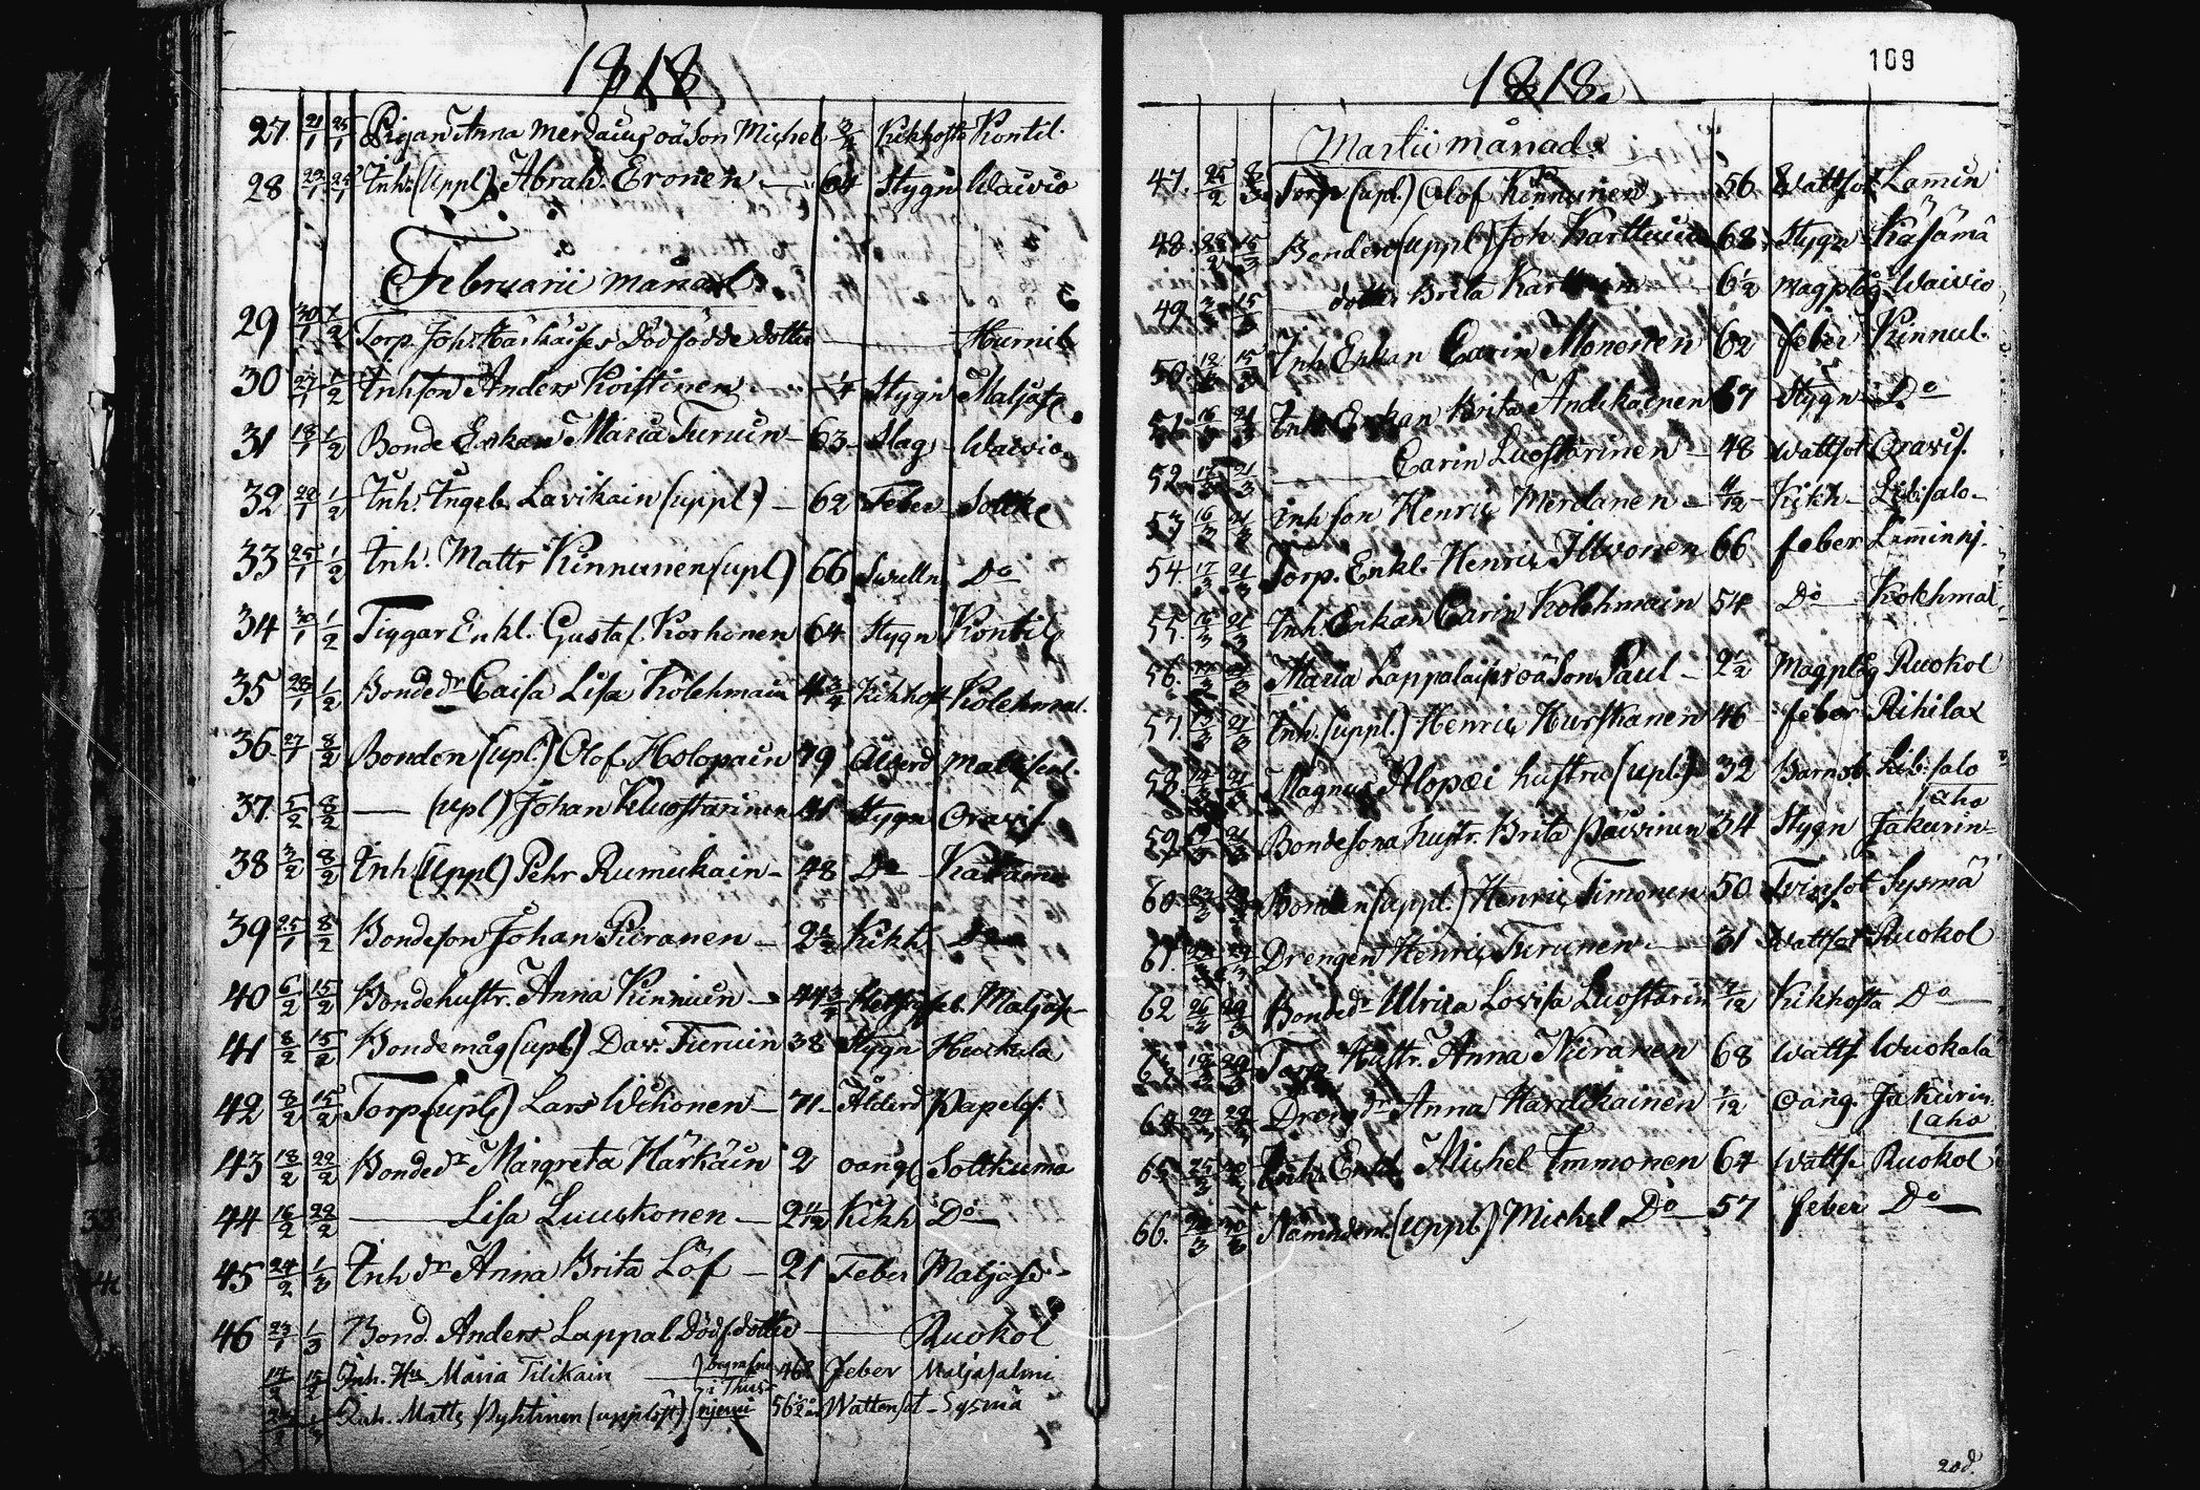 1818
27. 21/1 25/1 Pigan Anna Merdaius oä Son Michel 3/4 Kikhosta Kontil.
28 22/1 25/1 Inh. (Uppl.) Abrah. Eronen 64 Stygn Waivio
Februarii månad.
29 30/1 1/2 Torp. Joh. Härkäises Dödfödde dotter Murnik
30 27/1 1/2 Inhson Anders Koistinen 1/4 Stygn Maljas.
31 18/1 1/2 Bonde Enkan Maria Turuin 63 Slag Waivio
32 29/1 1/2 Inh. Ingeb. Lavikain (uppl) 62 Feber Sottke
33 25/1 1/2 Inh. Matts Kinnunen (upl) 66 Swulln Do
34 30/1 1/2 Tiggar Enkl. Gustaf Korhonen 64 Stygn Kontil
35 28/1 1/2 Bondedr Caisa Lisa Kolehmain 4 3/4 Kikhost Kolehmal.
36. 27/1 8/2 Bonden (upl.) Olof Holopain 79 Ålderd
37. 5/2 8/2 (upl) Johan Kluostarinen 41 Stygn Oravis.
38 3/2 8/2 Inh (Uppl) Pehr Rumukain 48 Do Käsämä
39 25/1 8/2 Bondeson Johan Piiranen 2 1/2 Kikh. Do
40 6/2 15/2 Bondehustr. Anna Kinnuin 44 3/4 Maljas
41 8/2 15/2 Bondemåg (upl) Dav. Turuin 38 Stygn Huckala
42 8/2 15/2 Torp (upl) Lars Wihonen 71 Ålderd Papels.
43 18/2 22/2 Bondedr Margreta Härkäin 2 oang Sottkuma
44 16/2 22/2 Lisa Luuskonen 2 11/12 Kikh Do
45 24/2 1/3 Inh dr Anna Brita Löf 21 Feber Maljase
46 23/1 1/3 Bond. Anders Lappal Dödf. dotter Ruokol
14/2 15/2 Inh. Hu Maria Tilikain } begrafne 46 Feber Maljasalmi
i Thus-
Inh. Matts Pyhtinen (uppläst) njemi 56 1/2 år Wattensot Sysmä
1818.
109
Martii månad.
47. 25/2 8/3 Torp (upl.) Olof Kinnunen 56 Wattsot Lamin
48. 28/2 15/3 Bonden (uppl) Joh Karttuin 68 Stygn Käsämä
49 3/3 15/3 dotter Brita Kart 6 1/2 Magplåg Waivio
50. 12/3 15/3 Inh Enkan Carin Mononen 62 feber Kinnul.
51. 16/3 21/3 Inh Enkan Brita Andikainen 67 Stygn Do
52. 17/3 21/3 Carin Luostarinen 48 Wattsot Oravis.
53 16/3 21/3 Inh son Henric Merdanen 11/12 Kikh Libisalo
54. 17/3 21/3 Torp. Enkl. Henric Ilvonen 66 feber Laminnj.
55. 15/3 21/3 Inh. Enkan Carin Kolehmain 54 Do Kolehmal
56. Maria Lappalaises oä Son Paul 2 1/2 Magplåg Ruokol
57. 13/3 21/3 Inh. (uppl.) Henric Hurskanen 46 feber Rihilax
58. 14/3 21/3 Magnus Alopæi hustru (upl.) 32 Barnsb. Libisalo
59. Bondesona hustr. Brita Päivinen 34 Stygn Jakurin=
aho
60. 23/3 Bonden (uppl.) Henric Timonen 50 Tvinsot Sysmä
61. Drengen Henric Turunen 31 Wattsot Ruokol
62 26/2 29/3 Bondedr Ulrica Lovisa Luostarin 7/12 Kikhosta Do
63 19/3 29/3 Torp. Hustr. Anna Nuranen 68 Watts Wuokala
64 Drengdr Anna Hardikainen 1/12 oäng. Jakurin
aho
65. 25/3 Inh. Enkl. Michel Immonen 64 Watts. Ruokol
66. Nämndem. (uppl.) Michel Do 57 feber Do
20d.